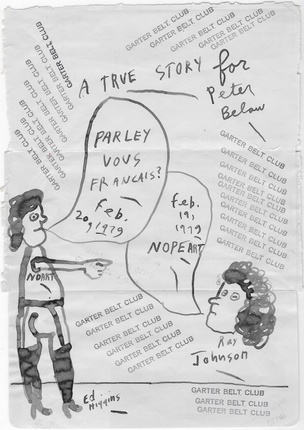 GARTER BELT CLUB
GARTER BELT CLUB
GARTER BELT CLUB
GARTER BELT CLUB
GARTER BELT CLUB
GARTER BELT CLUB
GARTER BELT CLUB
GARTER BELT CLUB
GARTER BELT CLUB
GARTER BELT CLUB
A TRUE STORY for
Peter
Below
PARLEY
VOUS
FRANCAIS?
Feb.
20, 1979
Feb.
19,
1979
NOPE ART
GARTER BELT CLUB
GARTER BELT CLUB
GARTER BELT CLUB
GARTER BELT CLUB
GARTER BELT CLUB
GARTER BELT CLUB
GARTER BELT CLUB
GARTER BELT CLUB
GARTER BELT CLUB
NOART
GARTER BELT CLUB
GARTER BELT CLUB
GARTER BELT CLUB
GARTER BELT CLUB
GARTER BELT CLUB
Ray
Johnson
Ed
Higgins
GARTER BELT CLUB
GARTER BELT CLUB
GARTER BELT CLUB